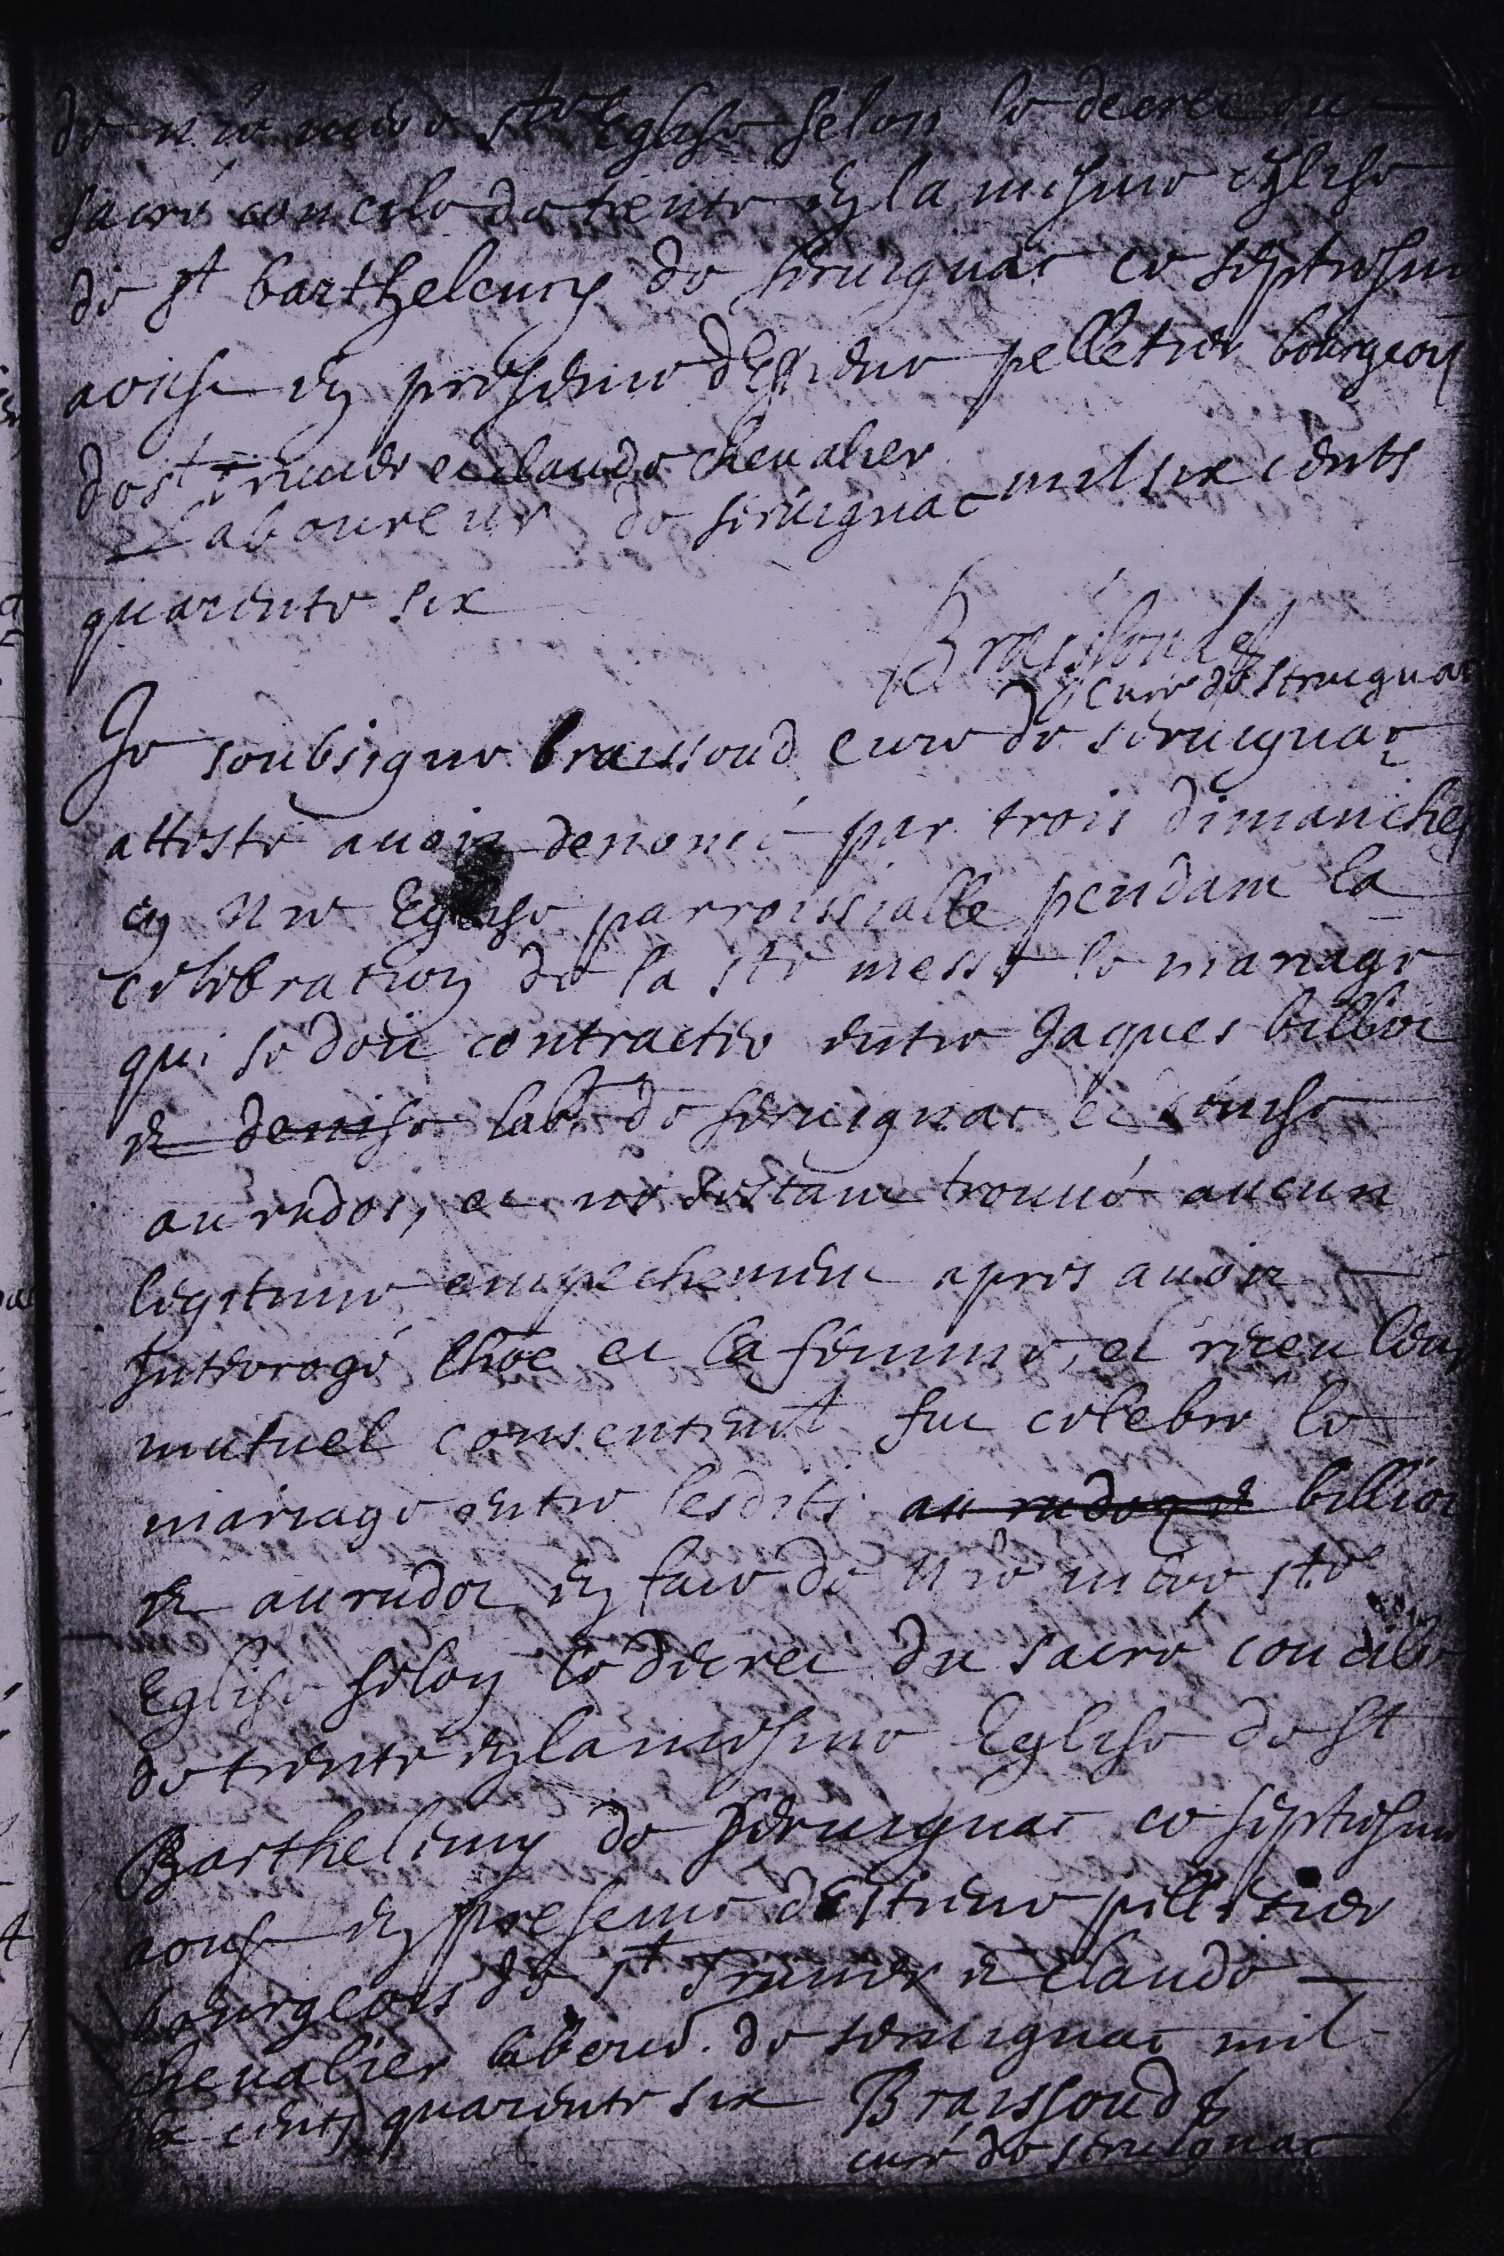 de n're mere ste Eglise selon le decree du
sacré concile de trente en la mesme eglise
de st barthelemy de seruignac ce septiesme
aoust en presence d'Estiene pelletier bourgeois
de st Triuier et claude cheualier
Laboureur de seruignac mil six cents
quarente six
Braissoud
curé de Seruignac
Je soubsigne braissoud cure de seruignac
atteste auoir denoncé par trois dimanches
en n're Eglise parroissialle pendant la
celebration de la ste messe le mariage
qui se doit contracter entre Jaques billioi
et denise labr de seruignac et denise
au rudoi, et ne sestant trouué aucun
legitime empechement apres auoir
Interrogé l'hoe et la femme, et receu leur
mutuel consentemt fut celebré le
mariage entre lesdits au rudoz et billioi
et au rudoi en face de n're mere ste
Eglise selon le decrei du sacré concile
de trente en la mesme Eglise de St
Barthelemy de seruignac ce septiesme
aoust en presence d'Estiene pelletier
bourgeois de st Triuier et claude
cheualier laboureur de seruignac mil
six cents quarente six Braissoud
curé de seruignac